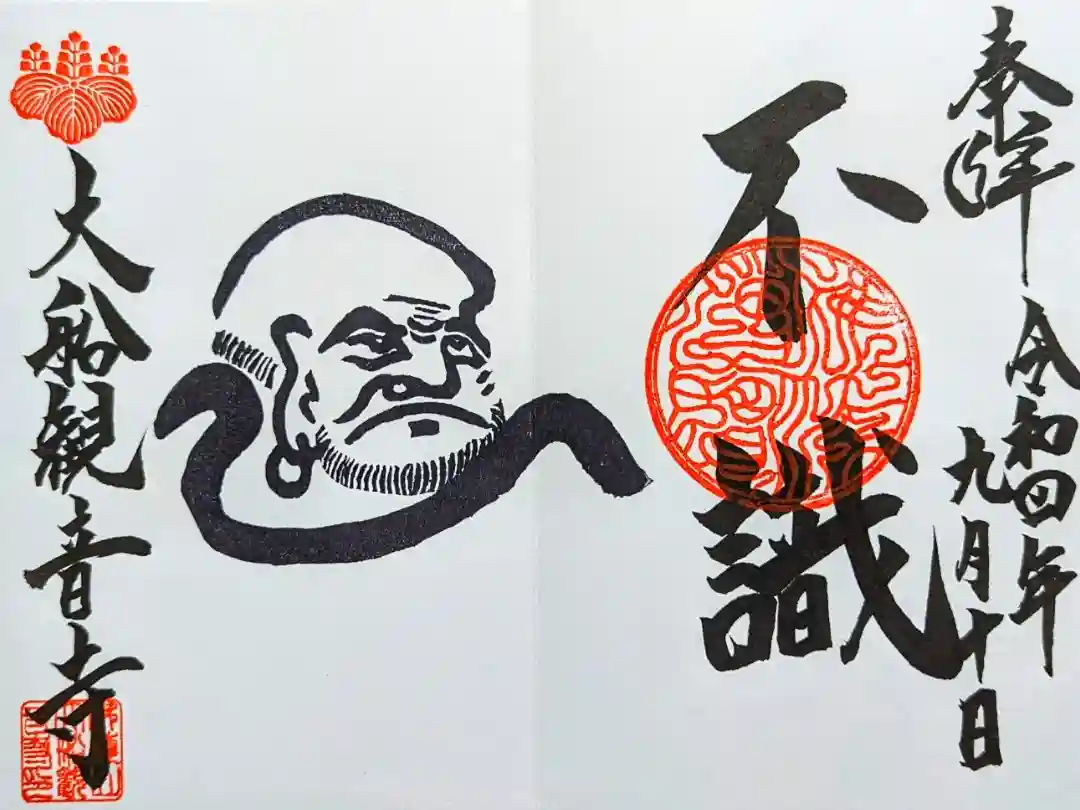 奉拝 令和四年
九月十日
不識
大船観音寺